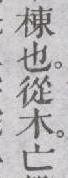 棟也。從木。亡